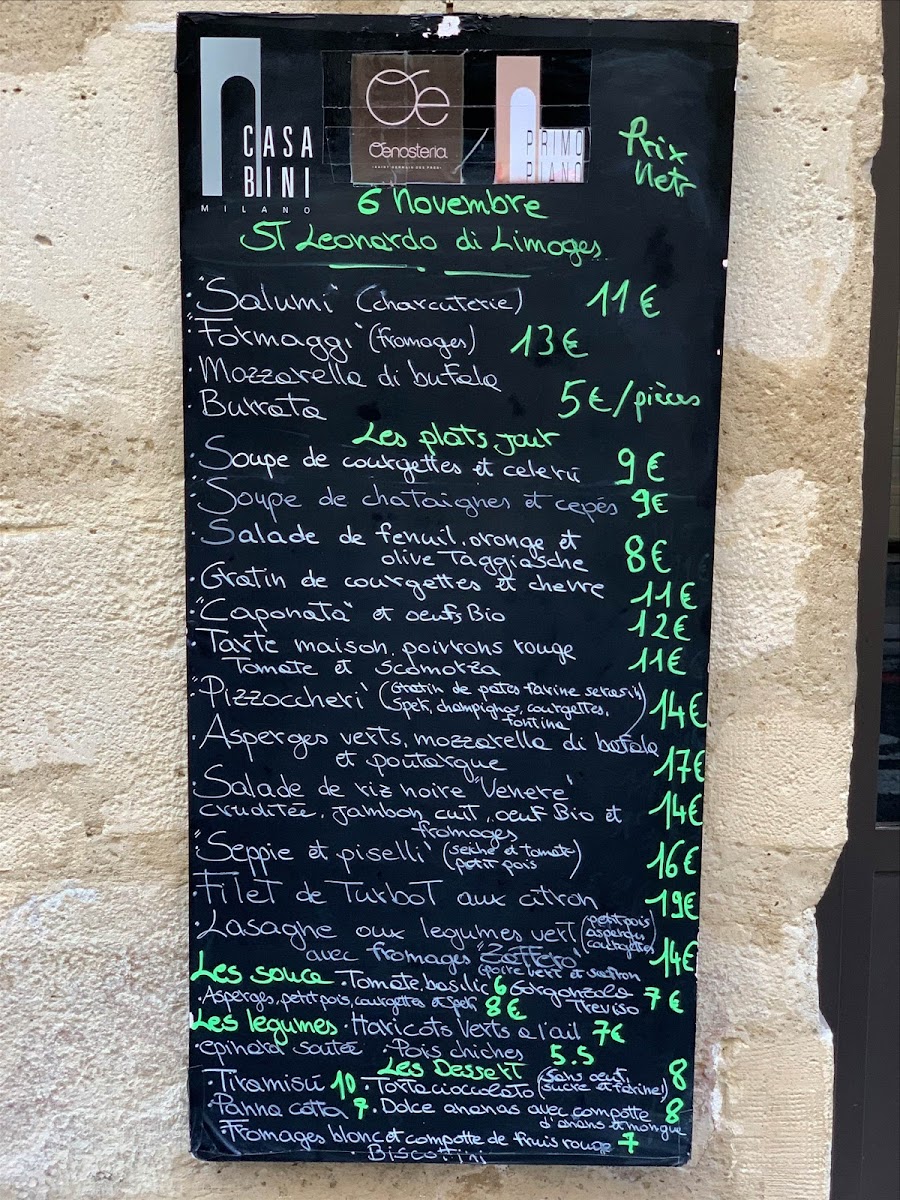 CASA
BINI
MILANO
Oe
Oenosteria
SAINT GERMAIN DES PRES
PRIMO
PIANO
Prix
Nets
6 Novembre
ST Leonardo di Limoges
·"Salumi" (charcuterie) 11€
·"Formaggi" (fromages) 13€
·Mozzarella di bufala
·Burrata 5€/pièces
Les plats jour
·Soupe de courgettes et celeri 9€
·Soupe de chataignes et cepes 9€
·Salade de fenuil, orange et
olive Taggiasche 8€
·Gratin de courgettes et chevre 11€
·"Caponata" et oeufs Bio 12€
·Tarte maison, poivrons rouge
Tomate et scamorza 11€
·"Pizzoccheri" (Gratin de pates farine serasin
Spek, champignos, courgettes,
fontina) 14€
·Asperges verts, mozzarella di bufala
et poutargue 17€
·Salade de riz noire "Venere"
cruditée, jambon cuit, oeuf Bio et
fromages 14€
·"Seppie et piselli" (seiche et tomate
petit pois) 16€
·Filet de Turbot aux citron 19€
·Lasagne aux legumes vert (petit pois
asperges
courgettes)
avec fromages "Zaffero" 14€
(poivre vert et saffron
Les souce ·Tomate, basilic 6 Gorgonzola
Treviso 7€
·Asperges, petit pois, courgettes et spek 8€
Les legumes ·Haricots Verts a l'ail 7€
·epinard sautée ·Pois chiches 5.5
Les Dessert
·Tiramisú 10 ·Torta cioccolato (sans oeuf,
sucre et farine) 8
·Panna cotta 7 ·Dolce ananas avec compotte
d'anans et mangue 8
·Fromages blanc et compotte de fruis rouge 7
·Biscottini